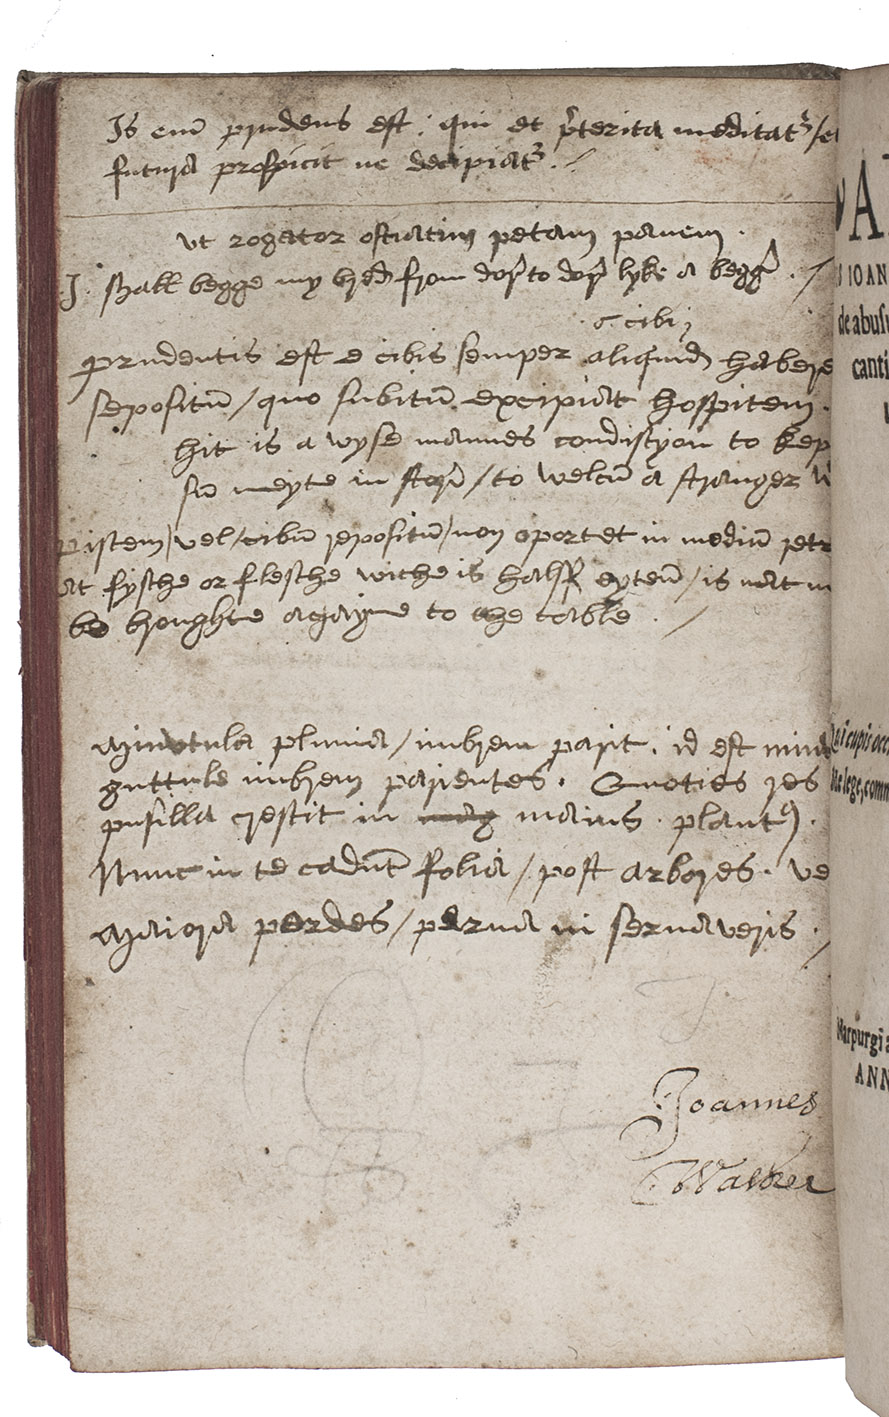 Is eni͂ prudens est: qui et p̃terita meditatᷣ /et
futura prospicit ne decipiatᷣ. /
ut rogator ostiatim petam panem.
I shall begge my bred from dor to dor lyke a begg̃. /
s. cibi
prudentis est e cibis semper aliquid habere
sepositũ / quo subitũ excipiat hospitem.
hit is a wyse mannes condistyon to kep
sũ meyte in stor / to welcũ a stranger w
pistem / vel / cibũ repositũ / non oportet in mediũ
at fysche or flesche wiche is halff eytẽ / is nat
be broughte agayne to the table. /
Minutula pluvia / imbrem parit. id est
guttule imbrem parientes. Quoties res
pusilla crescit in maius. plautꝰ.
Nunc in te cadũt folia / post arbores. ve
Maiora perdes / parva ni servaveris. /
Joannes
Walker
A
IOAN
de abusu
canti
cupis
lege, comm
Marpurgi
ANN